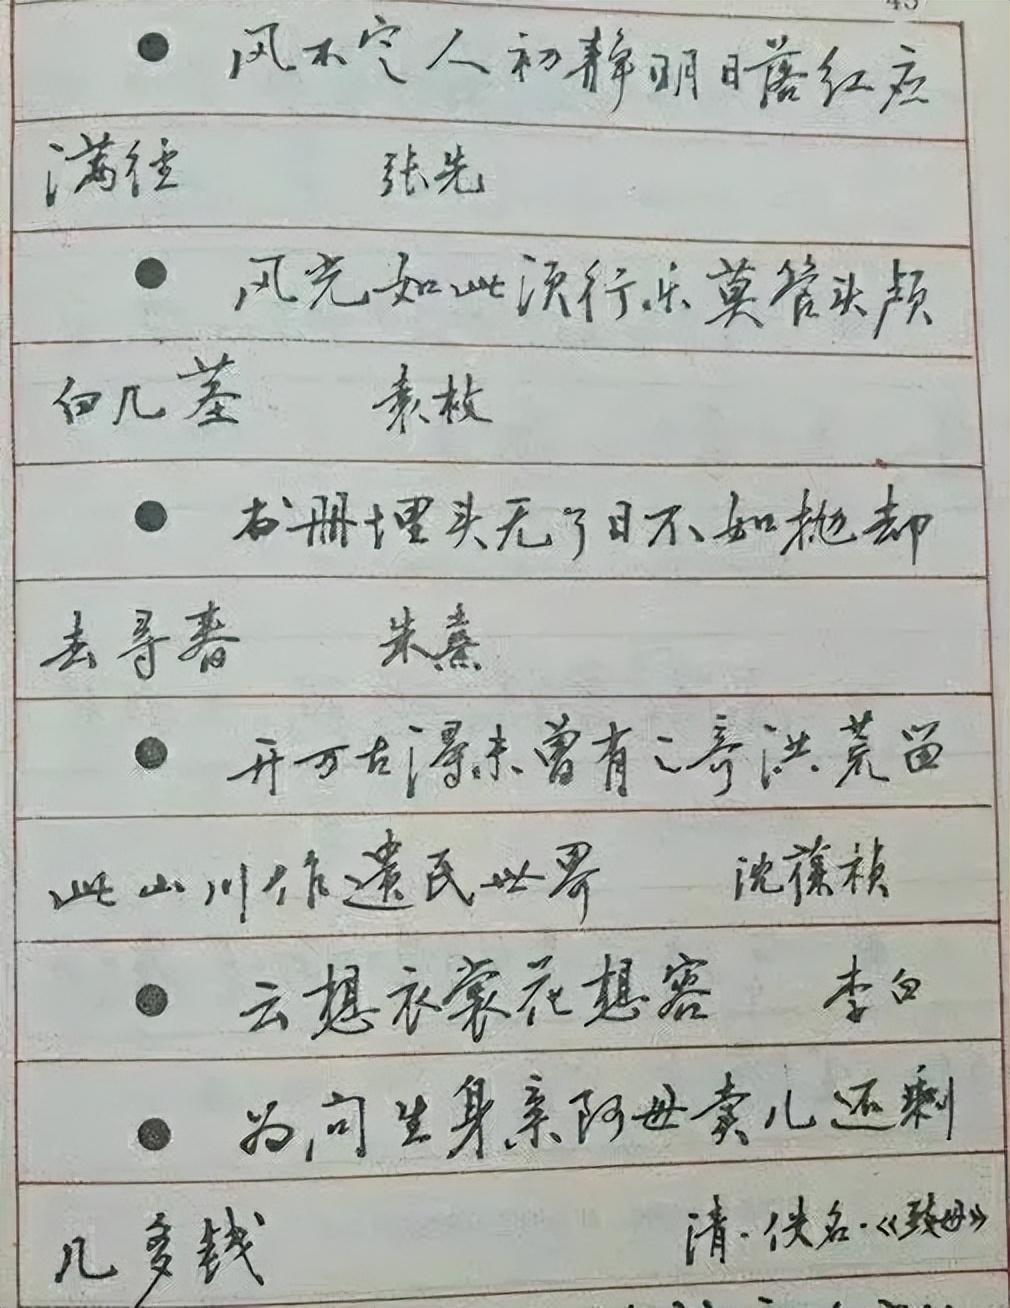 ● 风不定人初静明日落红应
满径 张先
● 风光如此须行乐莫管头颅
白几茎 袁枚
● 书册埋头无了日不如抛却
去寻春 朱熹
● 开万古得未曾有之奇洪荒留
此山川作遗民世界 沈葆祯
● 云想衣裳花想容 李白
● 为问生身亲阿母卖儿还剩
几多钱 清·佚名·《致母》